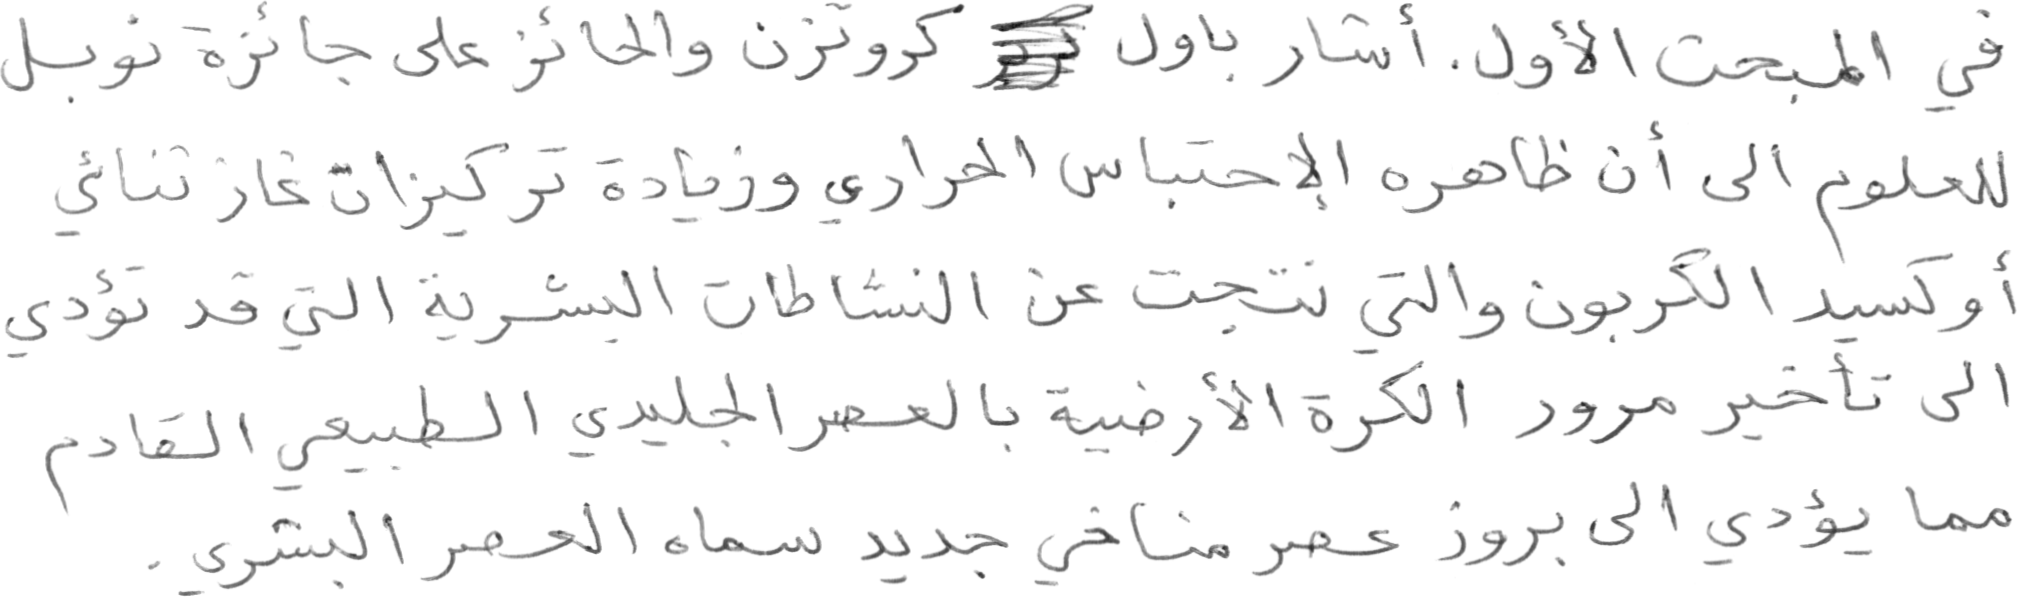 في المبحث الأول. أشار باول كروتزن والحائز على جائزة نوبل
للعلوم الى أن ظاهره الإحتباس الحراري وزيادة تركيزات غاز ثنائي
أوكسيد الكربون والتي نتجت عن النشاطات البشرية التي قد تؤدي
الى تأخير مرور الكرة الأرضية بالعصر الجليدي الطبيعي القادم
مما يؤدي الى بروز عصر مناخي جديد سماه العصر البشري.